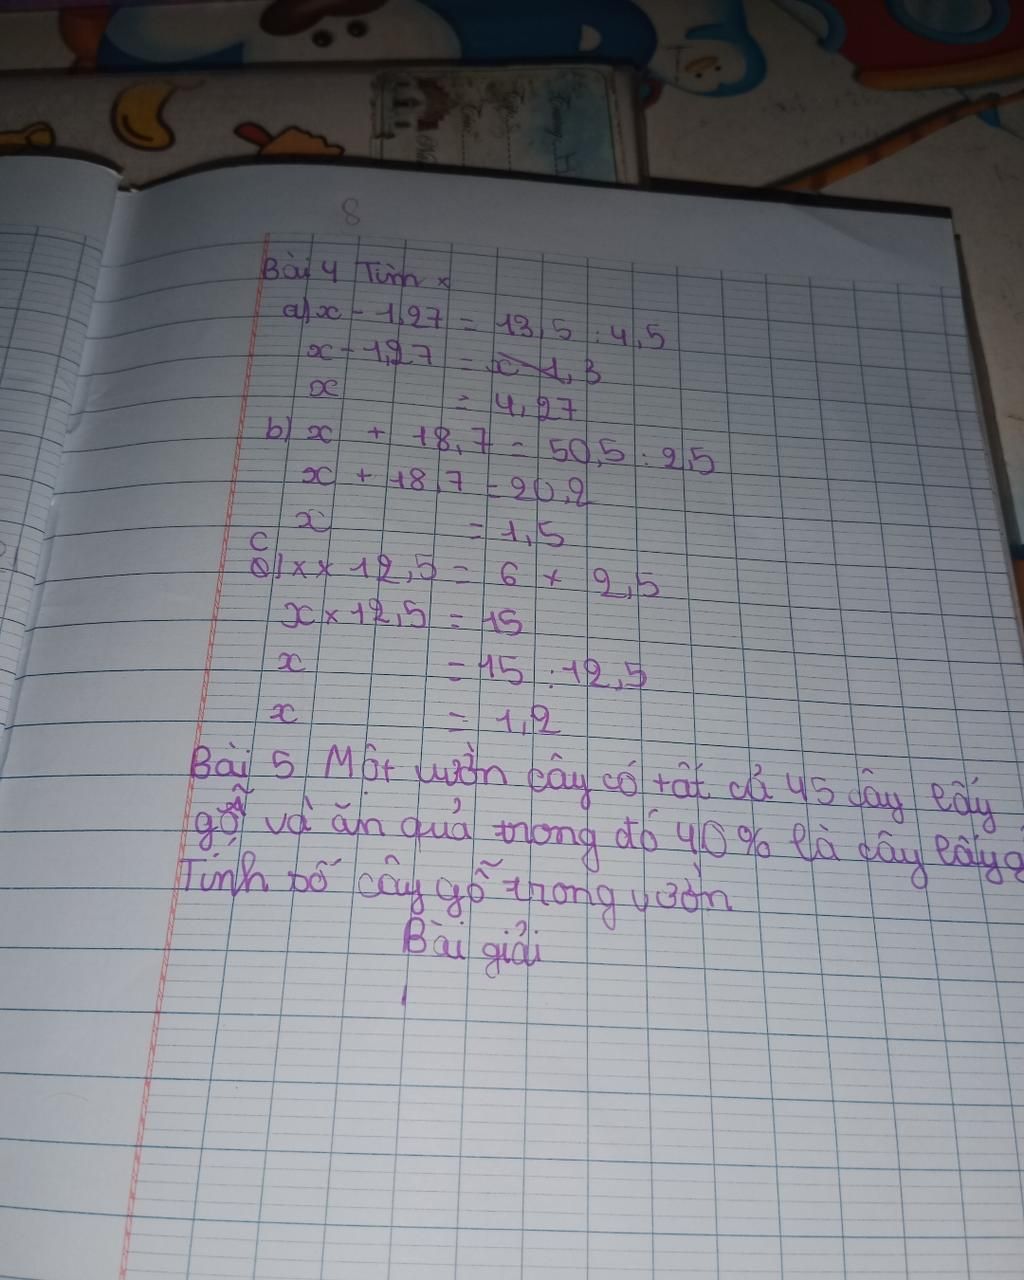 8
Bài 4 Tính x
a) x - 1,27 = 13,5 : 4,5
x - 1,27 = 3
x = 4,27
b) x + 18,7 = 50,5 : 2,5
x + 18,7 = 20,2
x = 1,5
c) x × 12,5 = 6 × 2,5
x × 12,5 = 15
x = 15 : 12,5
x = 1,2
Bài 5 Một vườn cây có tất cả 45 cây lấy
gỗ và ăn quả trong đó 40% là cây lấy g
Tính số cây gỗ trong vườn
Bài giải